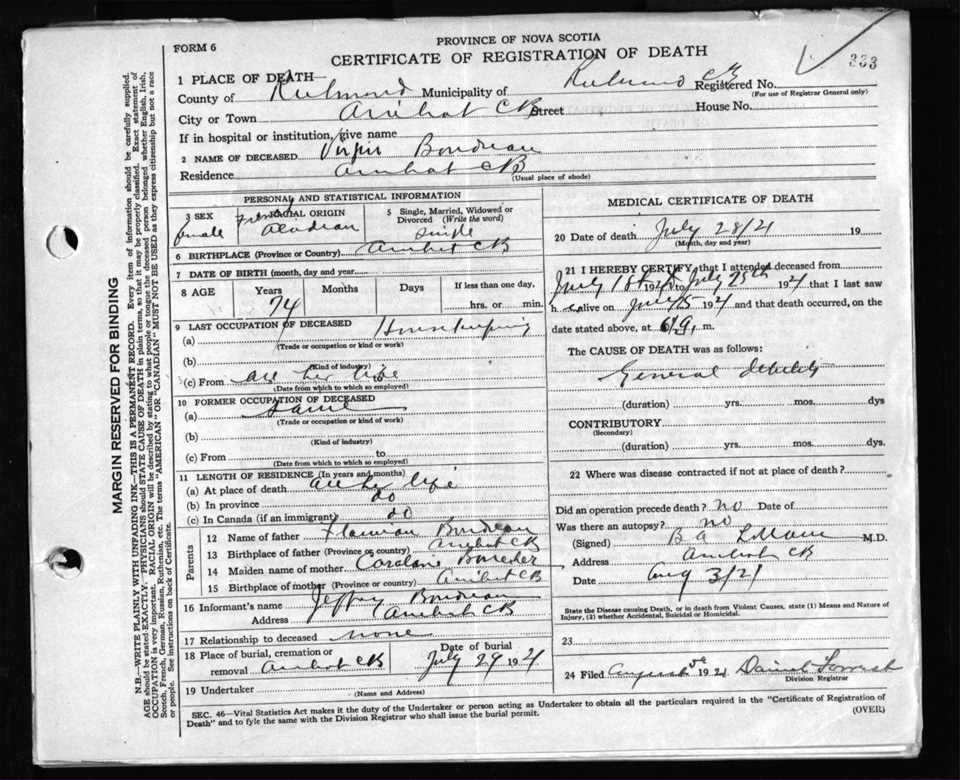 PROVINCE OF NOVA SCOTIA
FORM 6
CERTIFICATE OF REGISTRATION OF DEATH
333
1 PLACE OF DEATH—
County of Richmond Municipality of Richmond CB Registered No.
(For use of Registrar General only)
City or Town Arichat CB Street House No.
If in hospital or institution, give name
2 NAME OF DECEASED Boudreau
Residence Arichat CB
(Usual place of abode)
PERSONAL AND STATISTICAL INFORMATION
3 SEX female
RACIAL ORIGIN French Acadian
5 Single, Married, Widowed or Divorced (Write the word) Single
6 BIRTHPLACE (Province or Country) Arichat CB
7 DATE OF BIRTH (month, day and year)
8 AGE Years Months Days If less than one day,
74 hrs. or min.
9 LAST OCCUPATION OF DECEASED
(a) Housekeeping
(Trade or occupation or kind or work)
(b)
(Kind of industry)
(c) From all her life
(Date from which to which so employed)
10 FORMER OCCUPATION OF DECEASED
(a) Same
(Trade or occupation or kind of work)
(b)
(Kind of industry)
(c) From to
(Date from which to which so employed)
11 LENGTH OF RESIDENCE (In years and months)
(a) At place of death all her life
(b) In province do
(c) In Canada (if an immigrant) do
Parents
12 Name of father Boudreau
13 Birthplace of father (Province or country) Arichat CB
14 Maiden name of mother
15 Birthplace of mother (Province or country) Arichat CB
16 Informant's name Jeffrey Boudreau
Address Arichat CB
17 Relationship to deceased none
18 Place of burial, cremation or removal Arichat CB
Date of burial July 29 1921
19 Undertaker
(Name and Address)
MEDICAL CERTIFICATE OF DEATH
20 Date of death July 28/21 19
(Month, day and year)
21 I HEREBY CERTIFY, that I attended deceased from
July 18th 1921 to July 25th 1921 that I last saw
h er alive on July 25 1921 and that death occurred, on the
date stated above, at m.
The CAUSE OF DEATH was as follows:
General debility
(duration) yrs. mos. dys
CONTRIBUTORY
(Secondary)
(duration) yrs. mos. dys.
22 Where was disease contracted if not at place of death?
Did an operation precede death? no Date of
Was there an autopsy? no
(Signed) B A LeBlanc M.D.
Address Arichat CB
Date Aug 3/21
State the Disease causing Death, or in death from Violent Causes, state (1) Means and Nature of
Injury, (2) whether Accidental, Suicidal or Homicidal.
23
24 Filed August 5th 1921 Daniel
Division Registrar
SEC. 46—Vital Statistics Act makes it the duty of the Undertaker or person acting as Undertaker to obtain all the particulars required in the "Certificate of Registration of
Death" and to fyle the same with the Division Registrar who shall issue the burial permit.
(OVER)
MARGIN RESERVED FOR BINDING
N.B—WRITE PLAINLY WITH UNFADING INK—THIS IS A PERMANENT RECORD. Every item of information should be carefully supplied.
AGE should be stated EXACTLY. PHYSICIANS should STATE CAUSE OF DEATH in plain terms, so that it may be properly classified. Exact statement of
OCCUPATION is very important. RACIAL ORIGIN will be described by stating to what people or tongue the deceased person belonged whether English, Irish,
Scotch, French, German, Russian, Ruthenian, etc. The terms "AMERICAN" or "CANADIAN" MUST NOT BE USED as they express citizenship but not a race
or people. See instructions on back of Certificate.